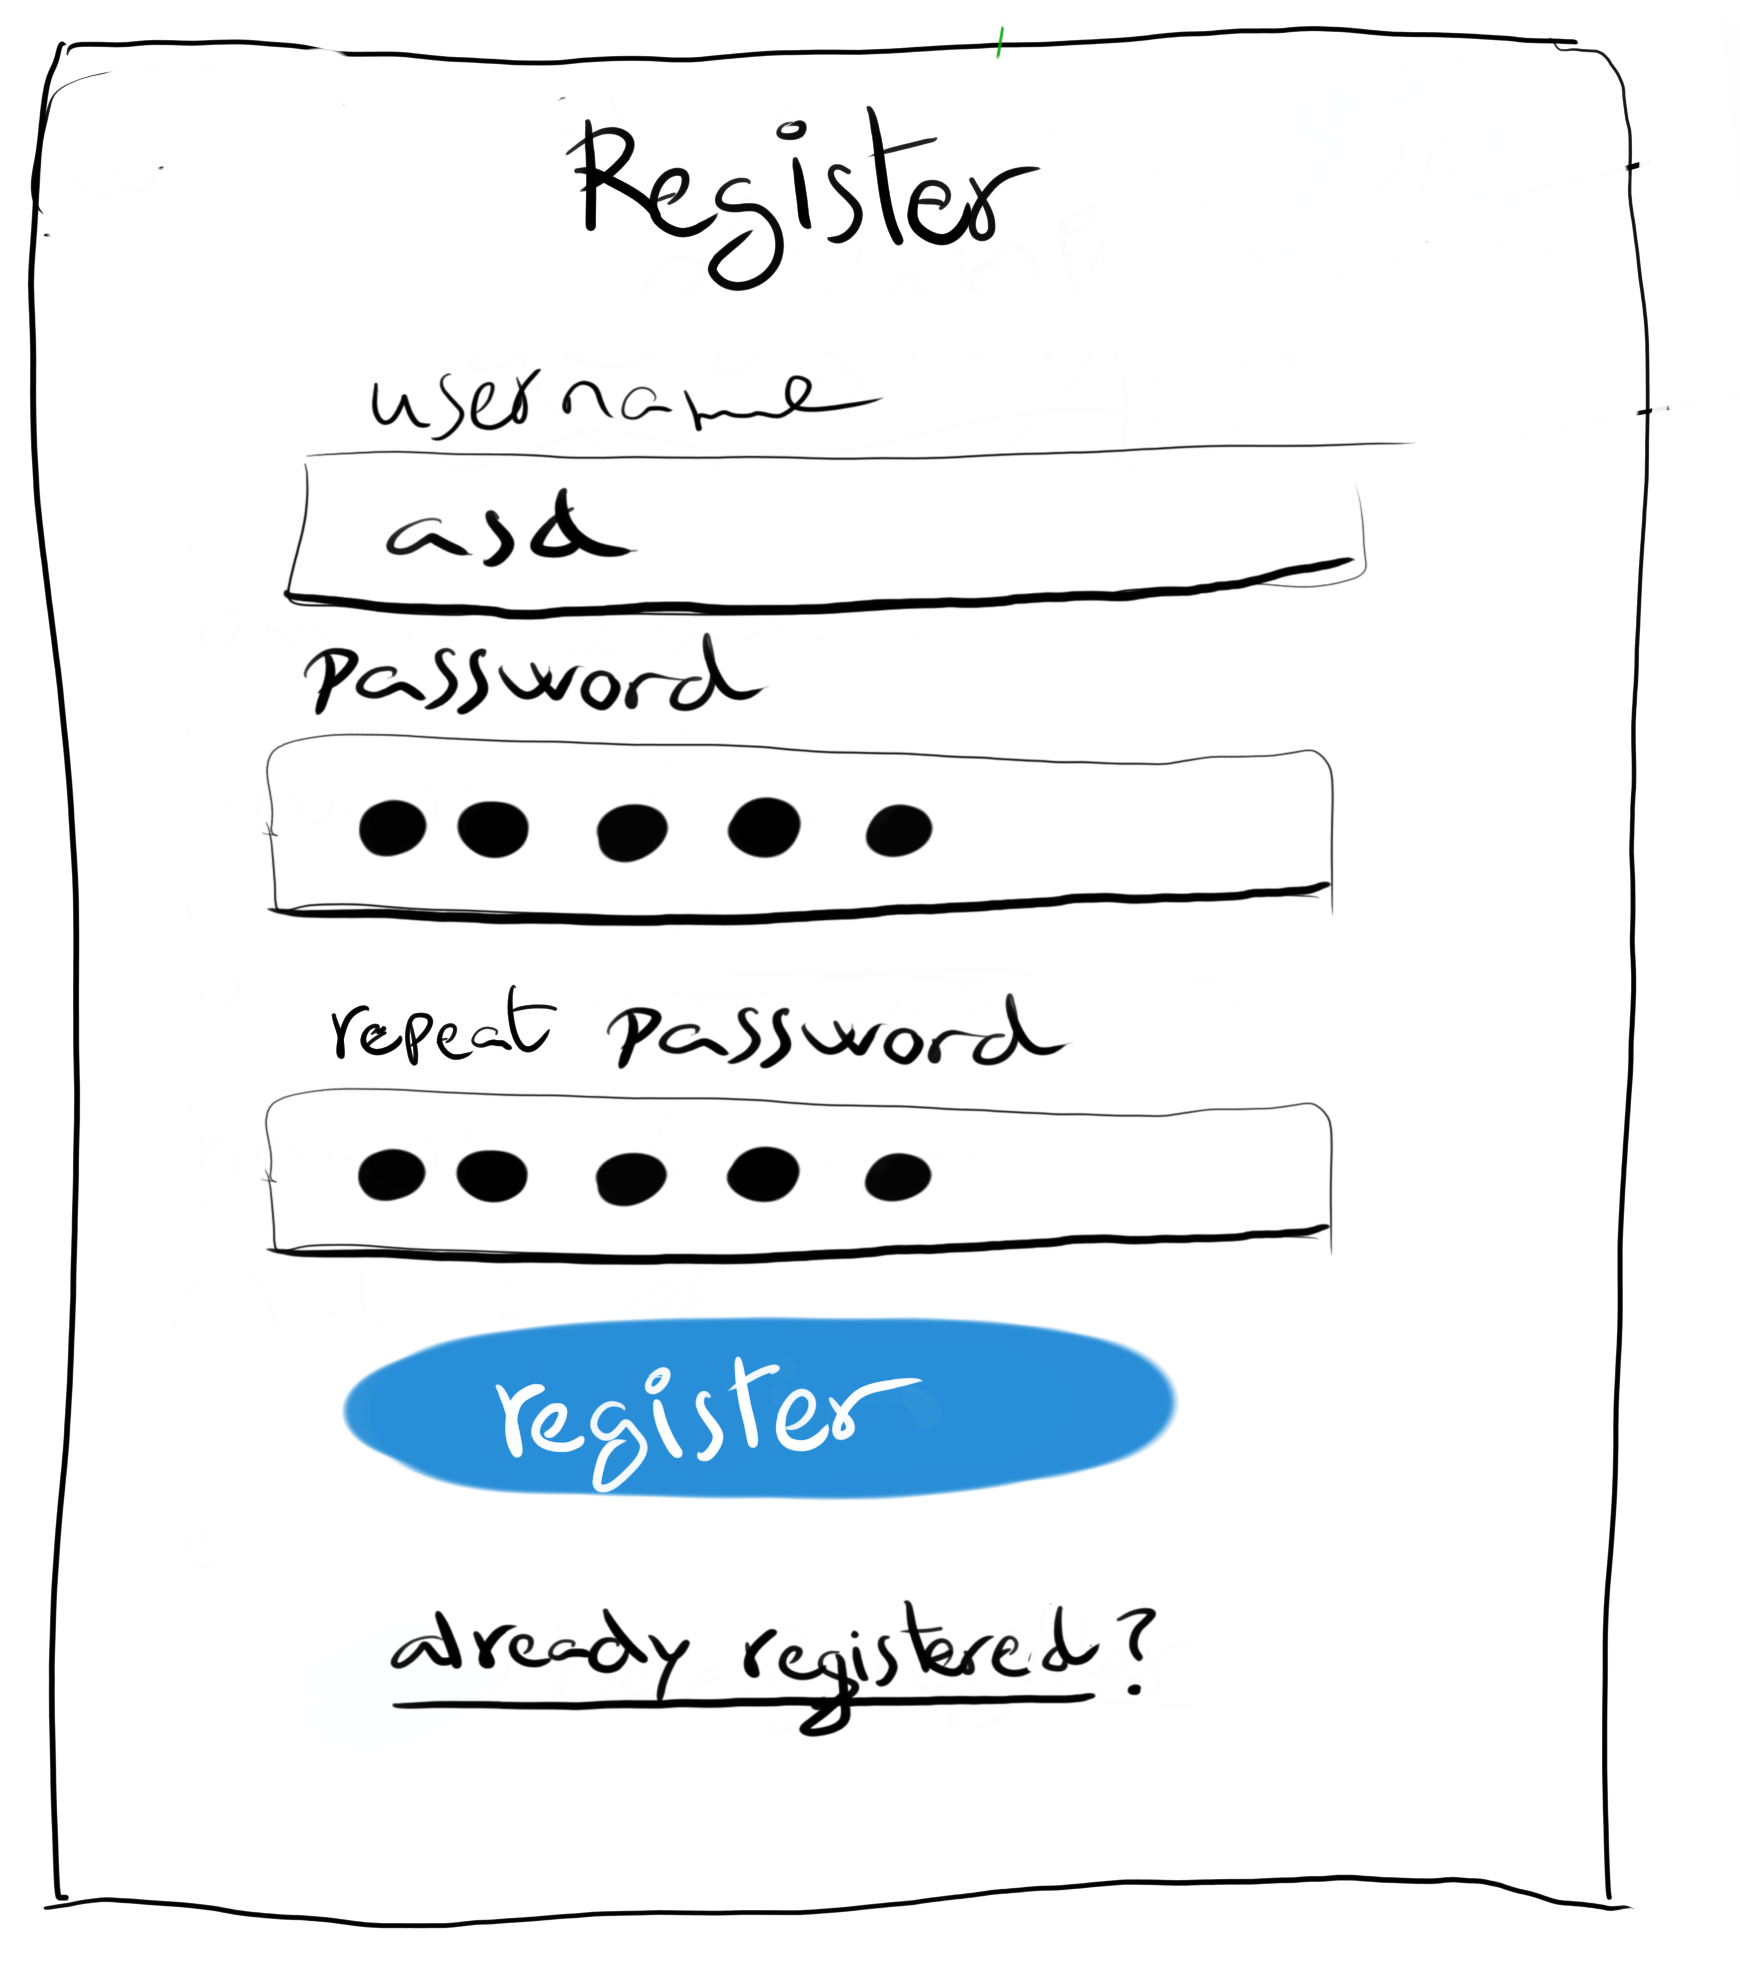 Register
username
asd
password
repeat password
register
already registered?